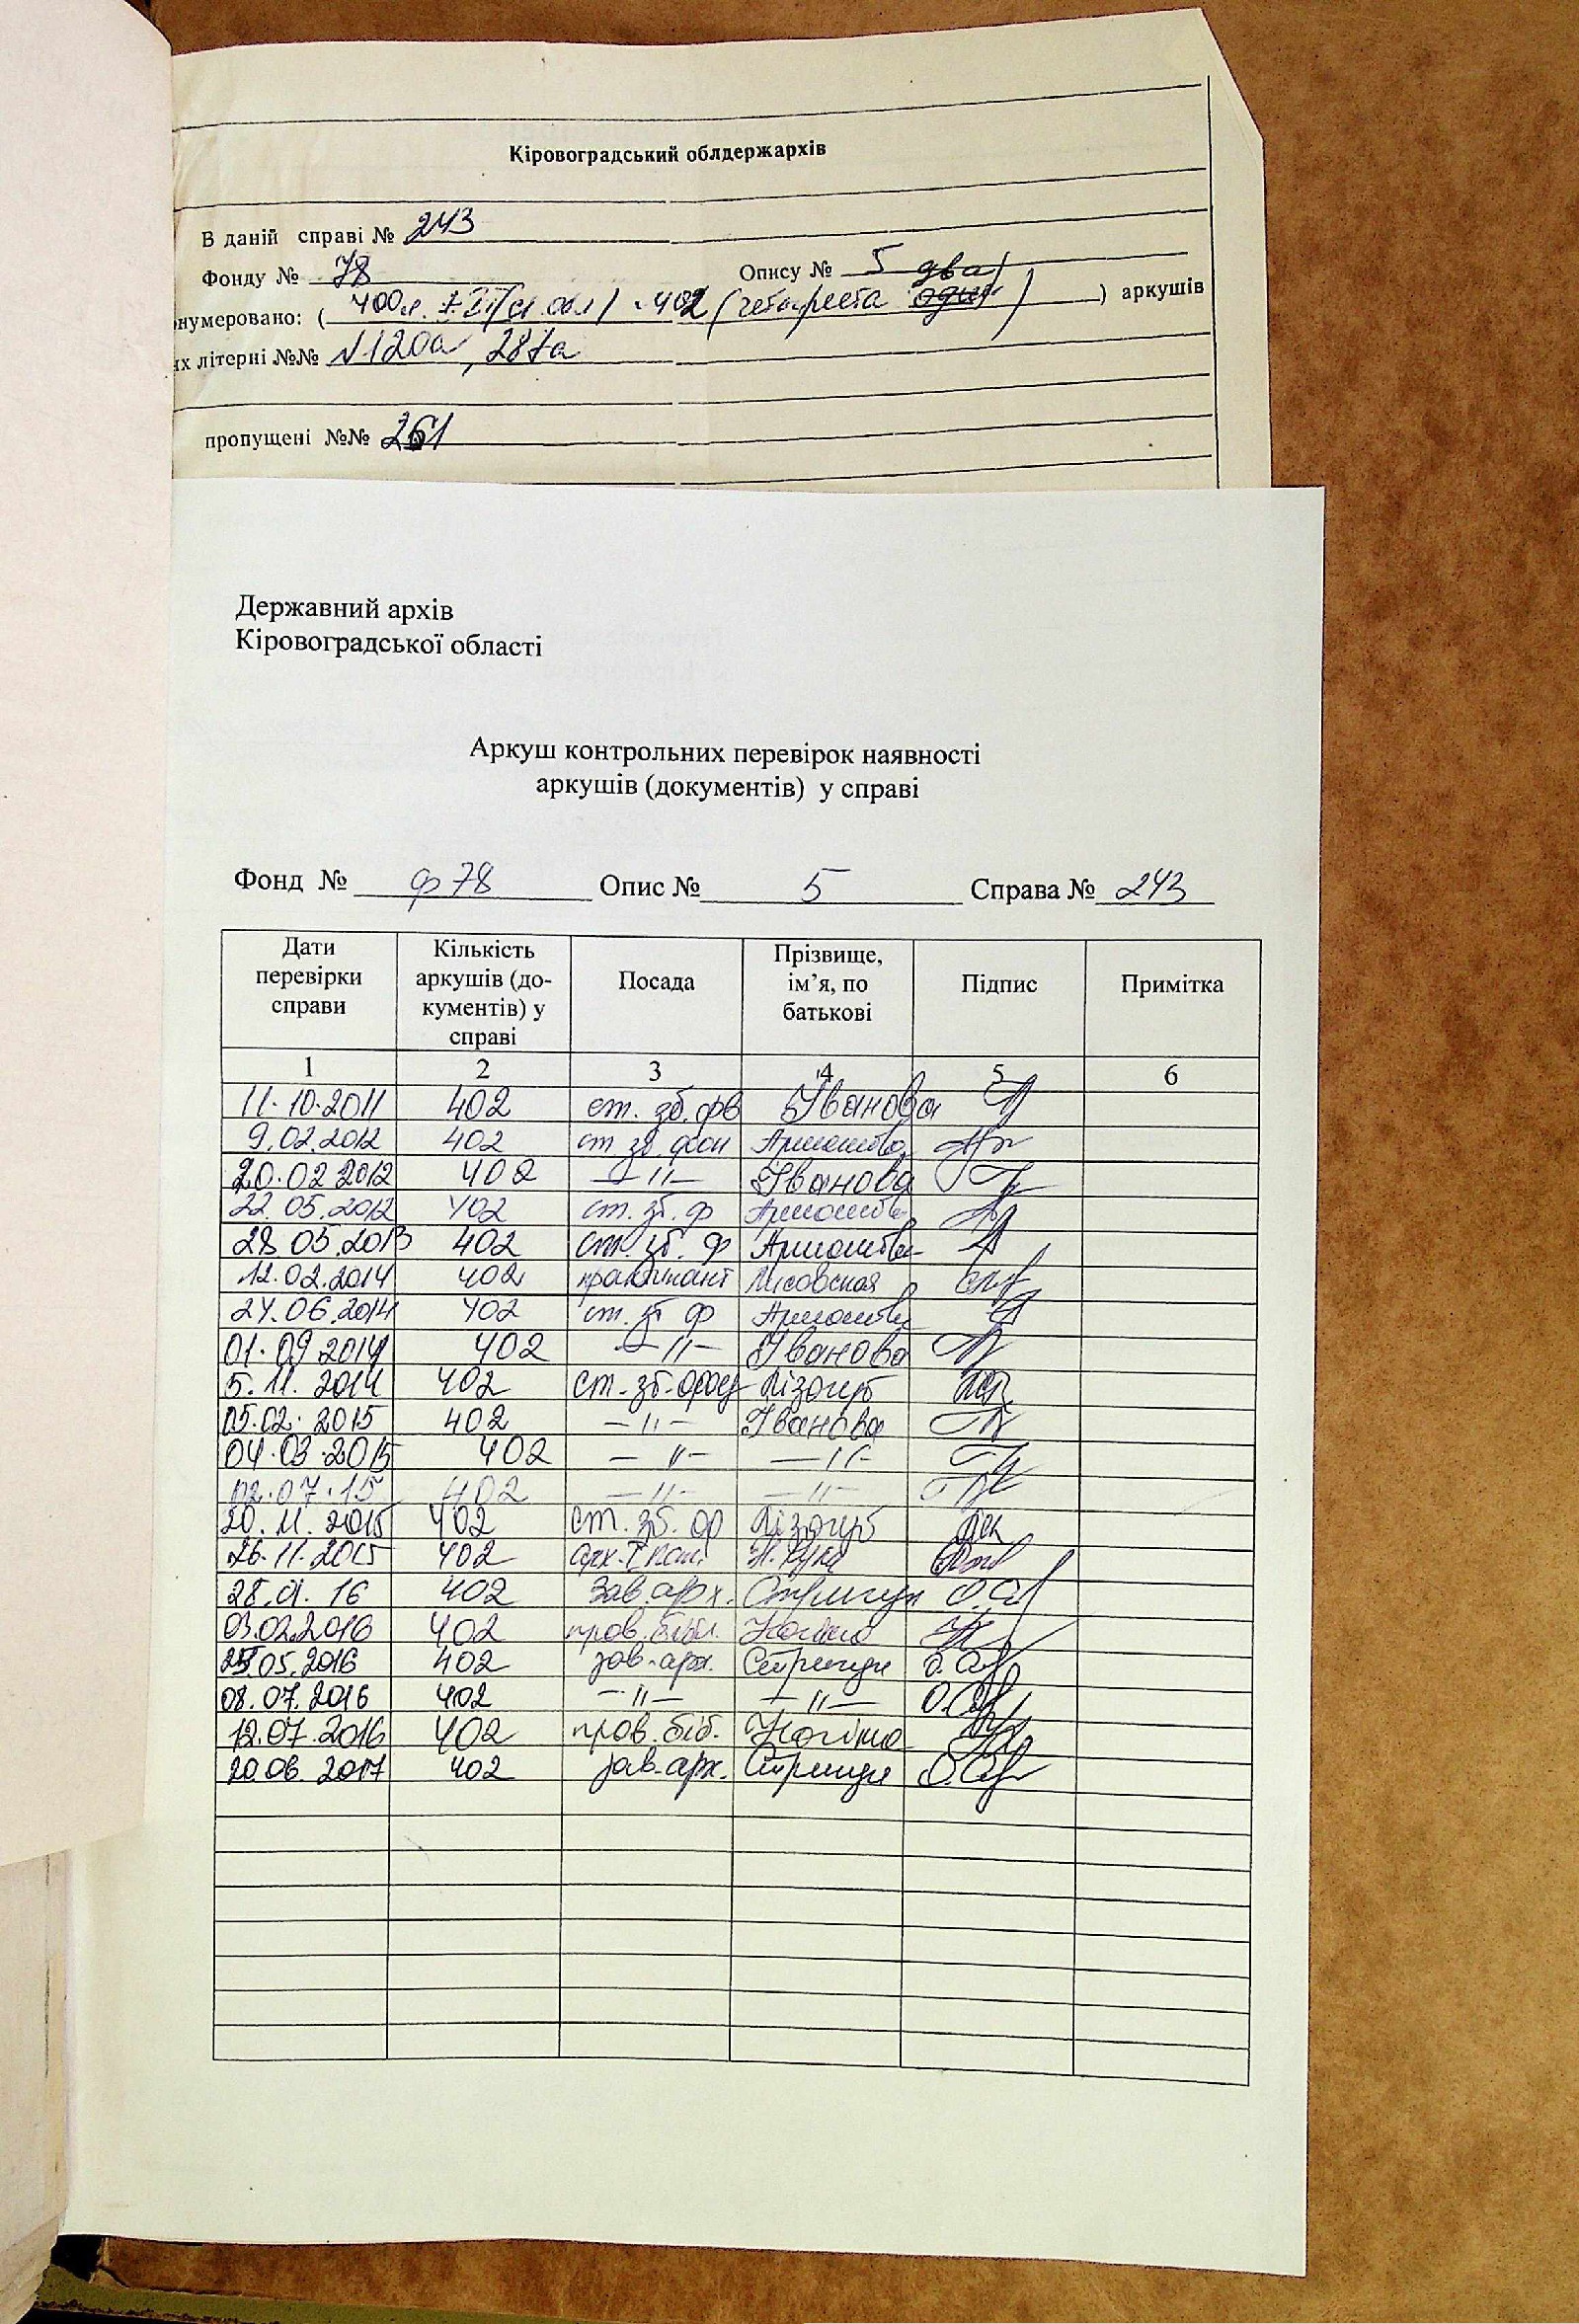 Кіровоградський облдержархів
В даній справі № 243
Фонду № 78 Опису № 5 два
нумеровано: ( 400 л. + II (ст. обл) = 402 (четыреста один) ) аркушів
их літерні №№ №120а, 287а
пропущені №№ 261
Державний архів
Кіровоградської області
Аркуш контрольних перевірок наявності
аркушів (документів) у справі
Фонд № ф 78 Опис № 5 Справа № 243
Дати перевірки справи Кількість аркушів (документів) у справі Посада Прізвище, ім’я, по батькові Підпис Примітка
1 2 3 4 5 6
11.10.2011 402 ст. зб. фв Іванова
9.02.2012 402 ст зб. фон
20.02 2012 402 —"— Іванова
22.05.2012 402 ст. зб. ф
28 05.2013 402 ст. зб. ф
12.02.2014 402 практикант Лисовская
24.06.2014 402 ст. зб ф
01.09 2014 402 —"— Іванова
5.11. 2014 402 ст. зб. фон Лізогуб
05.02. 2015 402 —"— Іванова
04.03.2015 402 —"— —"—
02.07.15 402 —"— —"—
20.11. 2015 402 ст. зб. ф Лізогуб
26.11.2015 402 арх. І кат.
28.01. 16 402 Зав. арх. Стригун
03.02.2016 402 пров. бібл.
25.05.2016 402 зав. арх. Стригун
08.07.2016 402 —"— —"—
12.07.2016 402 пров. біб.
20.06. 2017 402 зав. арх. Стригун